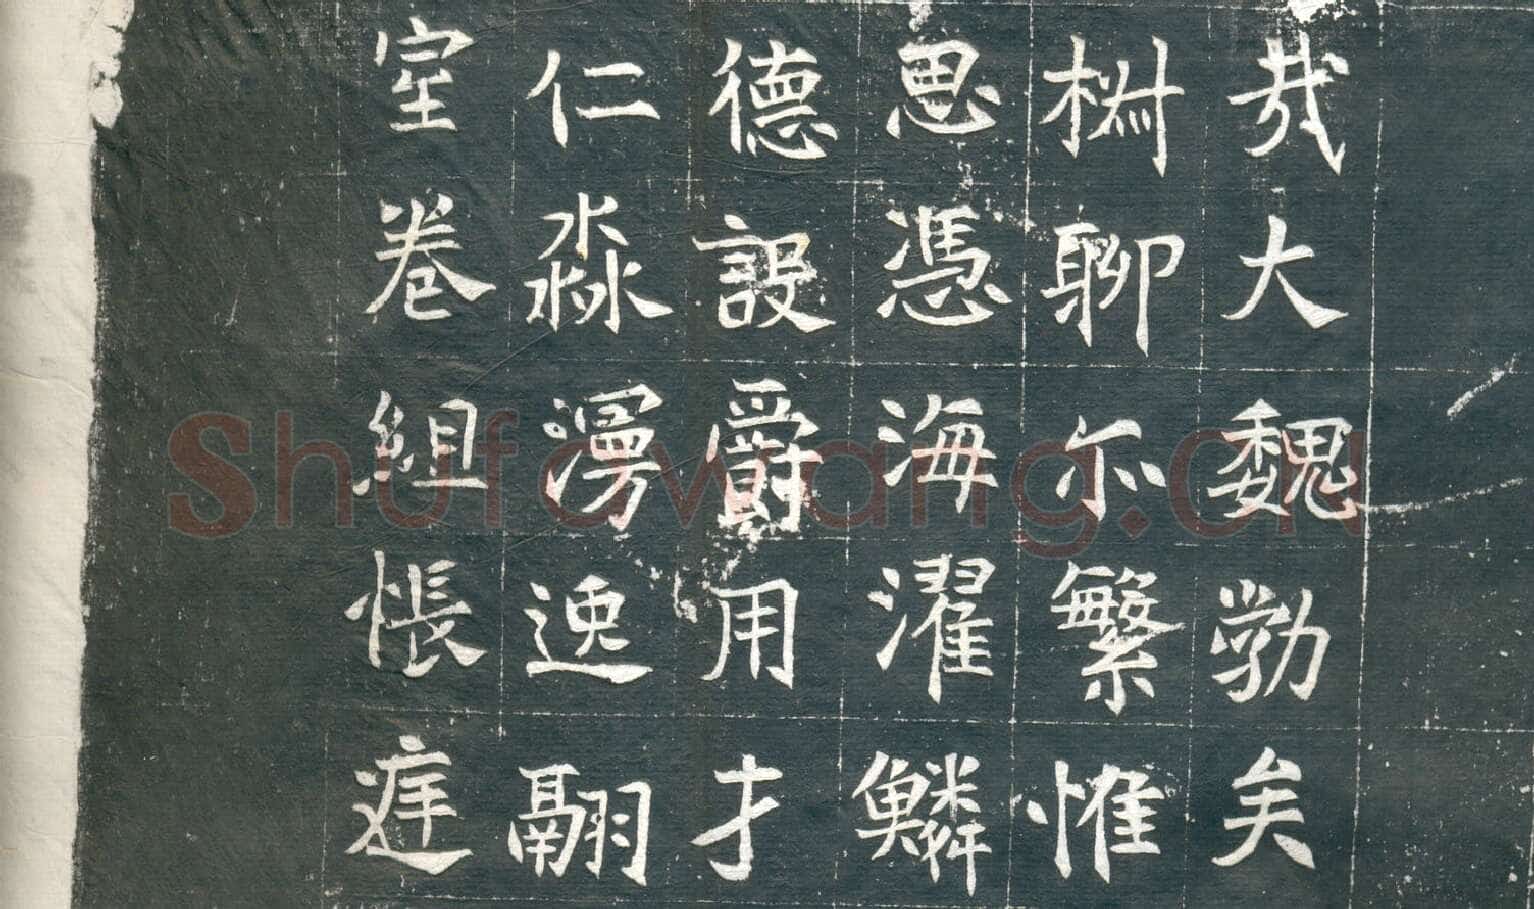 哉大魏勃矣
樹聊尔繁惟
思憑海濯鱗
德設爵用才
仁淼漫逸翮
室卷組帳庭
Shufawang.CN